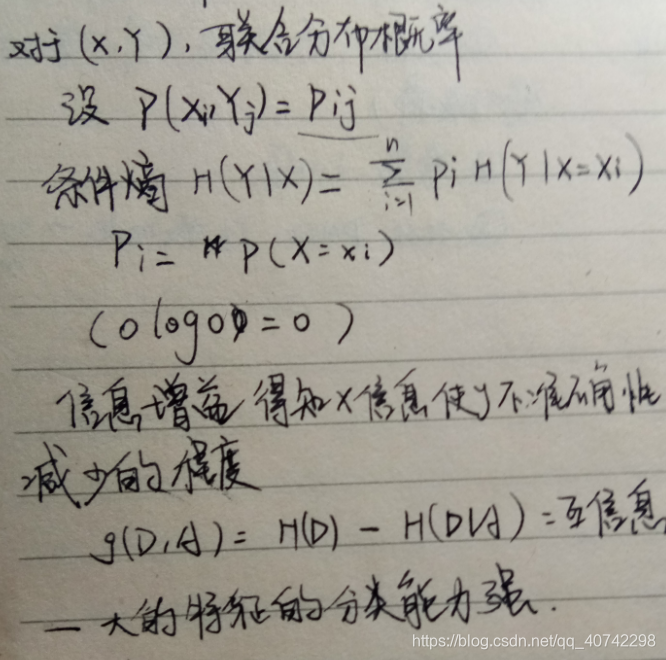 对于(X,Y),联合分布概率
设 P(Xi,Yj)=Pij
条件熵 H(Y|X)= n∑i=1 Pi H(Y|X=Xi)
Pi= P(X=xi)
(0log0=0)
信息增益 得知X信息使y不准确性
减少的程度
g(D,A)= H(D) - H(D|A)=互信息
一大的特征的分类能力强.
https://blog.csdn.net/qq_40742298